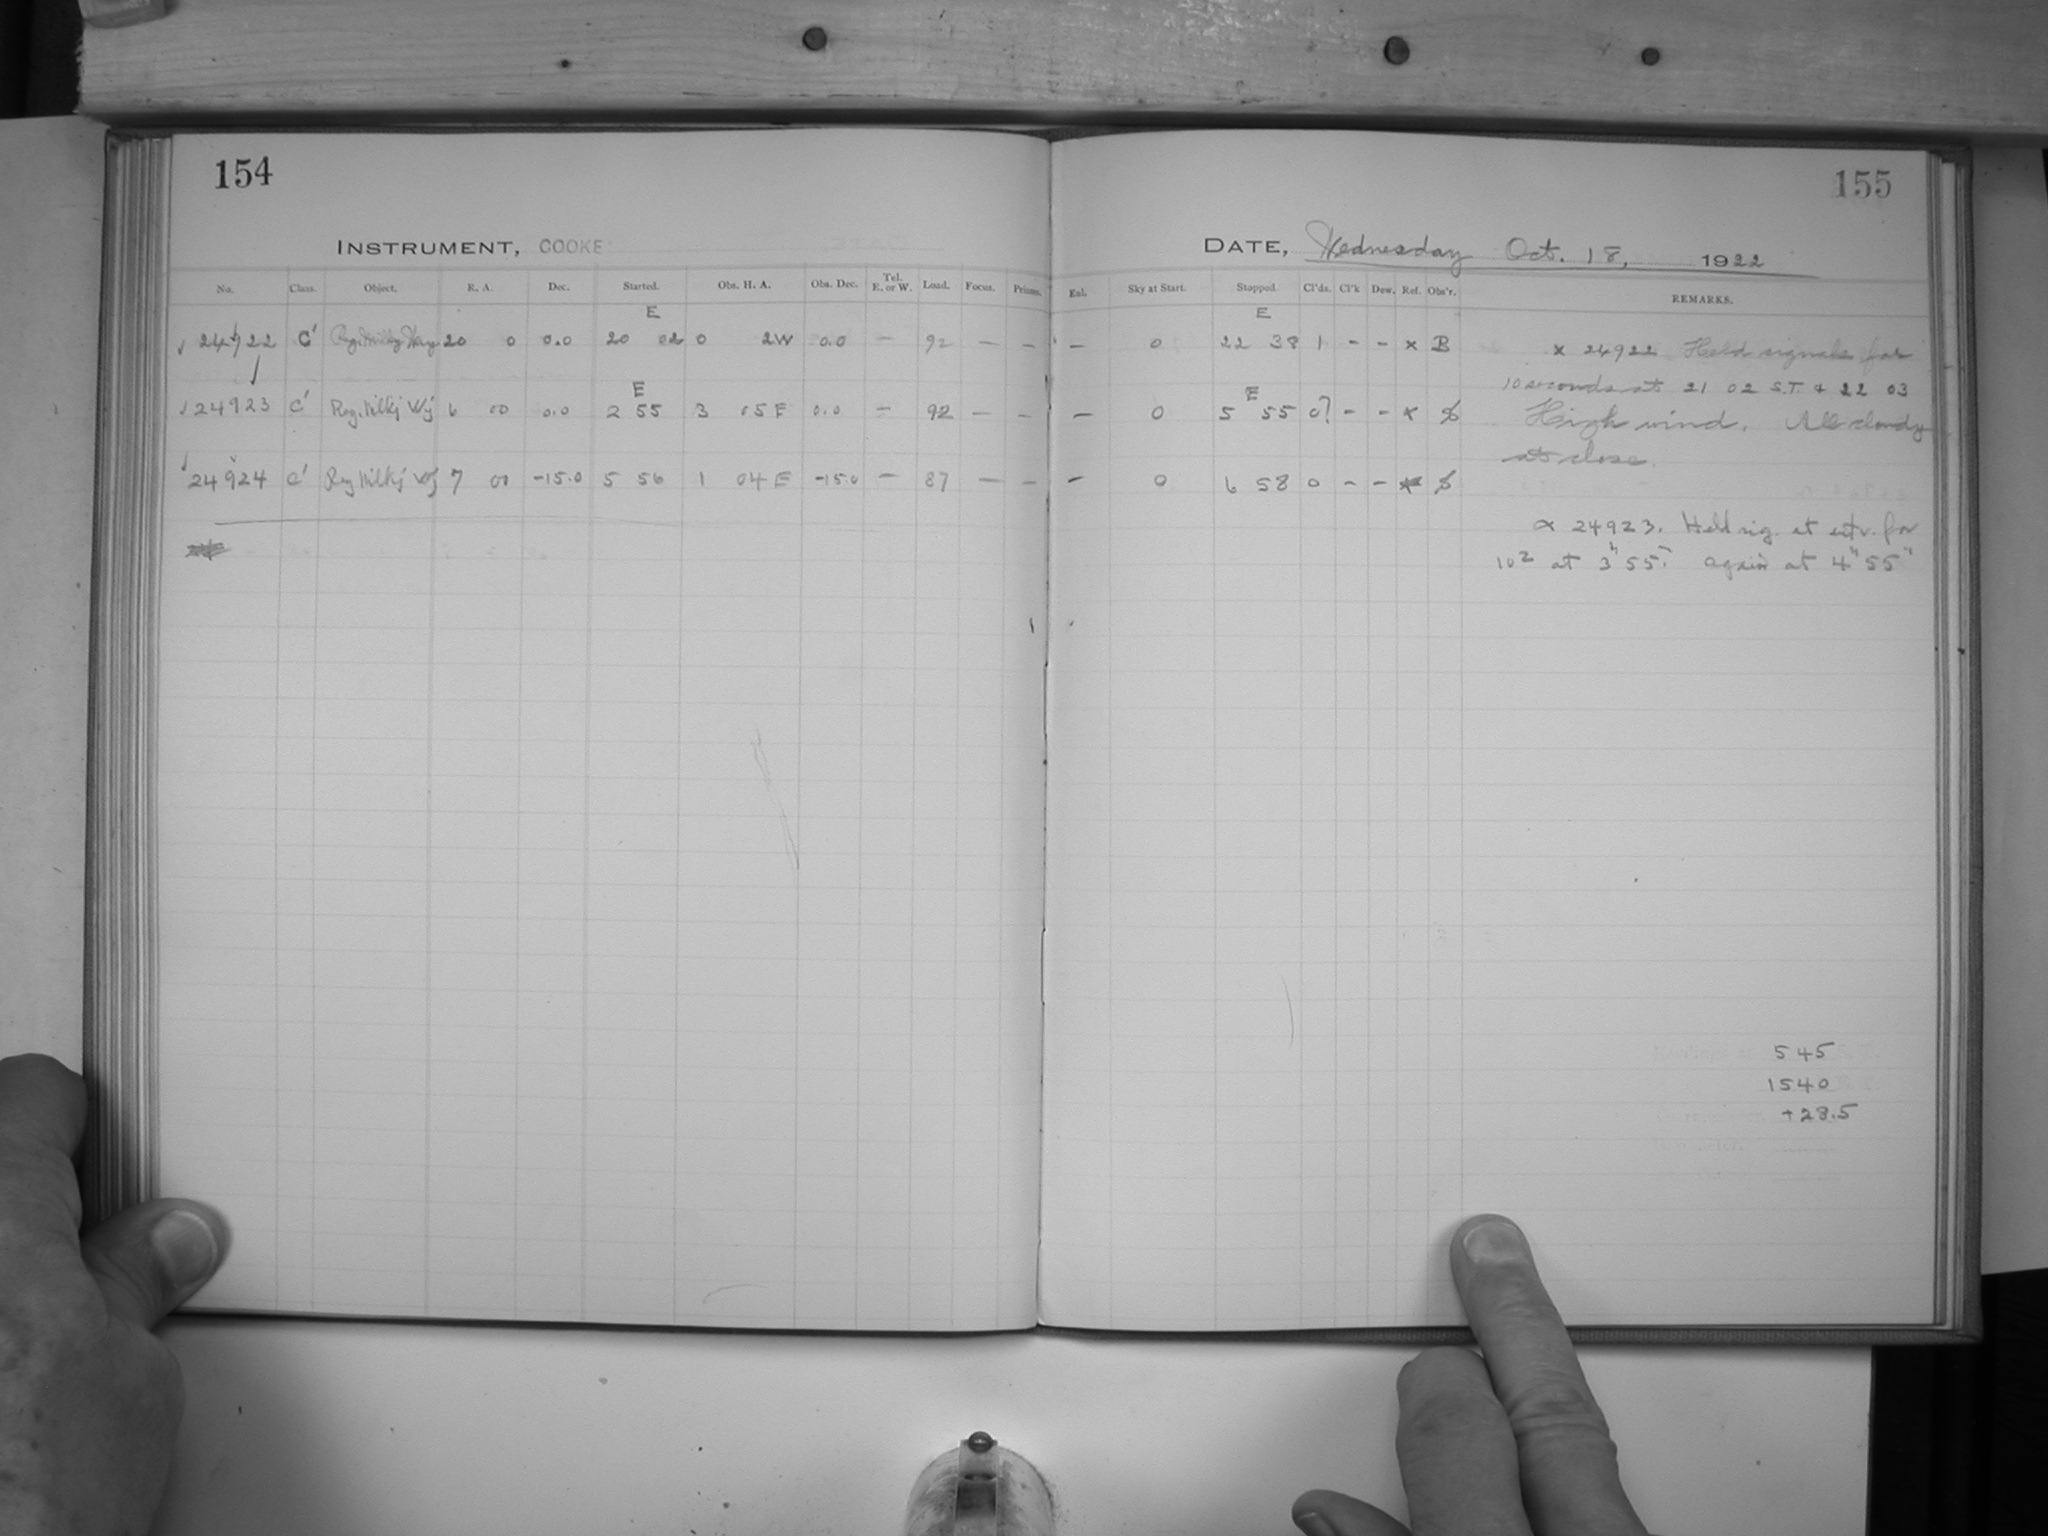 154
INSTRUMENT, COOKE
No. Class. Object. R. A. Dec. Started. Obs. H. A. Obs. Dec. Tel. E. or W. Load. Focus. Prisms.
E
24922 C' Reg. Milky Way 20 0 0.0 20 02 0 2W 0.0 — 92 — —
E
24923 C' Reg. Milky Wy 6 00 0.0 2 55 3 05 E 0.0 — 92 — —
24924 C' Reg Milky Wy 7 00 -15.0 5 56 1 04 E -15.0 — 87 — —
155
DATE, Wednesday Oct. 18, 1922
Enl. Sky at Start. Stopped. Cl'ds. Cl'k Dew. Ref. Obs'r. REMARKS.
E
— 0 22 38 1 - - x B
E
— 0 5 55 0? - - x
— 0 6 58 0 - -
x 24922 Held signals for
10 seconds at 21 02 S.T. & 22 03
High wind. All cloudy
at close.
x 24923. Held sig. at for
at 3h 55m. again at 4h 55m
545
1540
+28.5